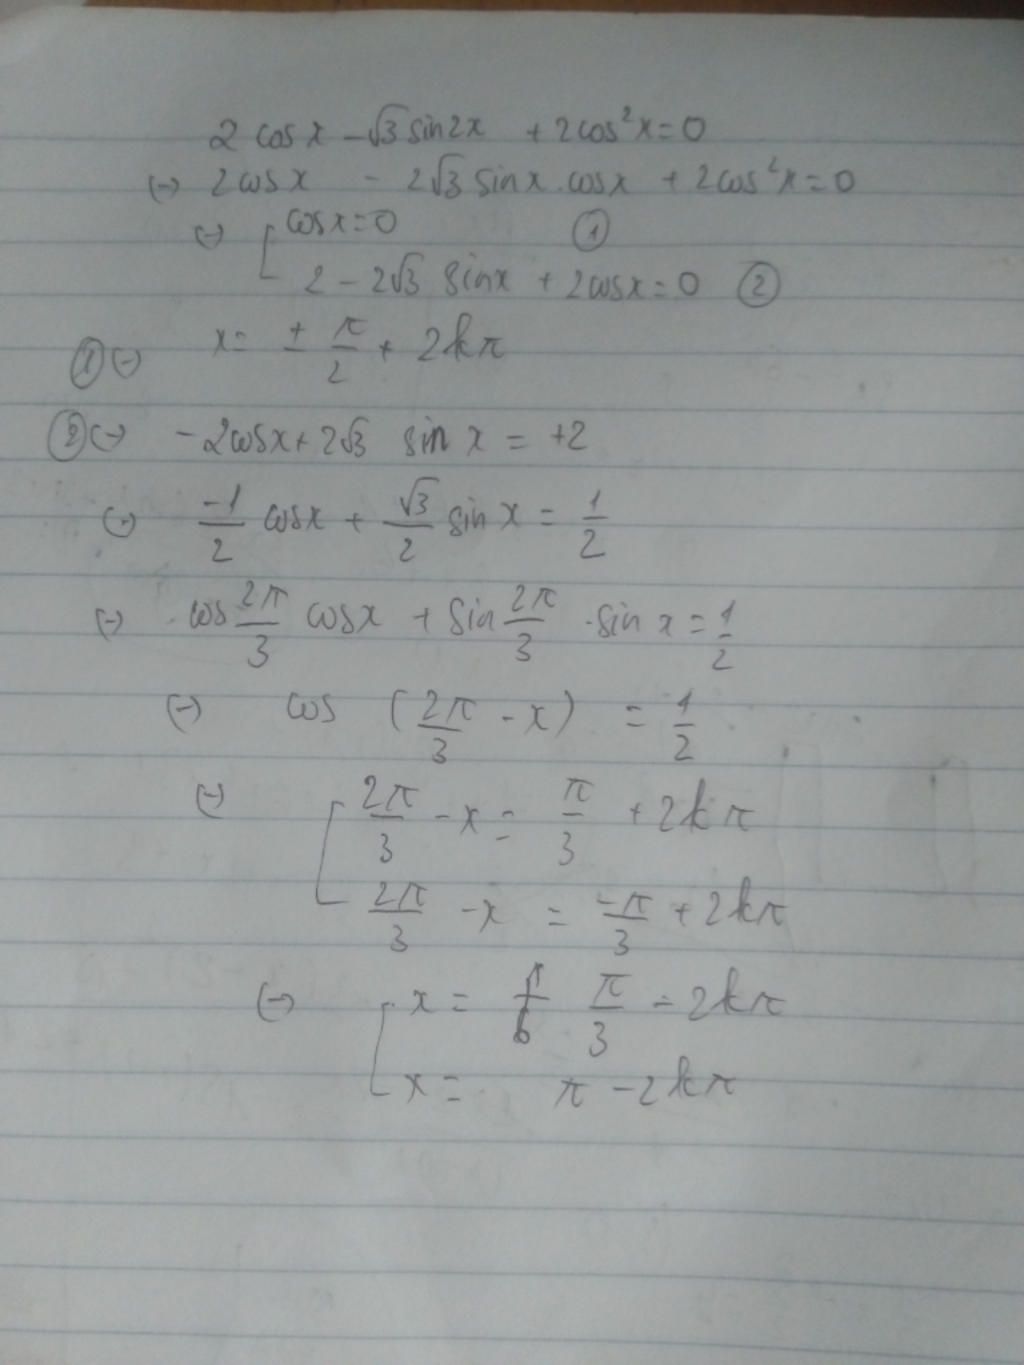 2 cosx - √3 sin2x + 2cos²x = 0
(-) 2cosx - 2√3 sinx.cosx + 2cos²x = 0
(-) [ cosx = 0 ①
2 - 2√3 sinx + 2cosx = 0 ②
① (-) x = ± π/2 + 2kπ
② (-) -2cosx + 2√3 sin x = +2
(-) -1/2 cosx + √3/2 sin x = 1/2
(-) cos 2π/3 cosx + sin 2π/3 . sin x = 1/2
(-) cos (2π/3 - x) = 1/2
(-) [ 2π/3 - x = π/3 + 2kπ
2π/3 - x = -π/3 + 2kπ
(-) [ x = π/3 - 2kπ
x = π - 2kπ